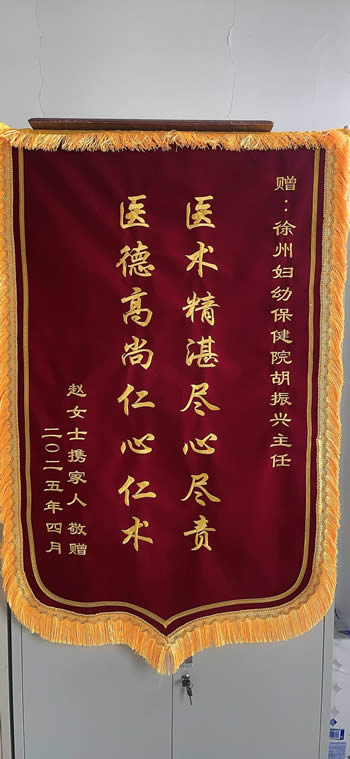 赠：徐州妇幼保健院胡振兴主任
医术精湛尽心尽责
医德高尚仁心仁术
赵女士携家人 敬赠
二〇二五年四月